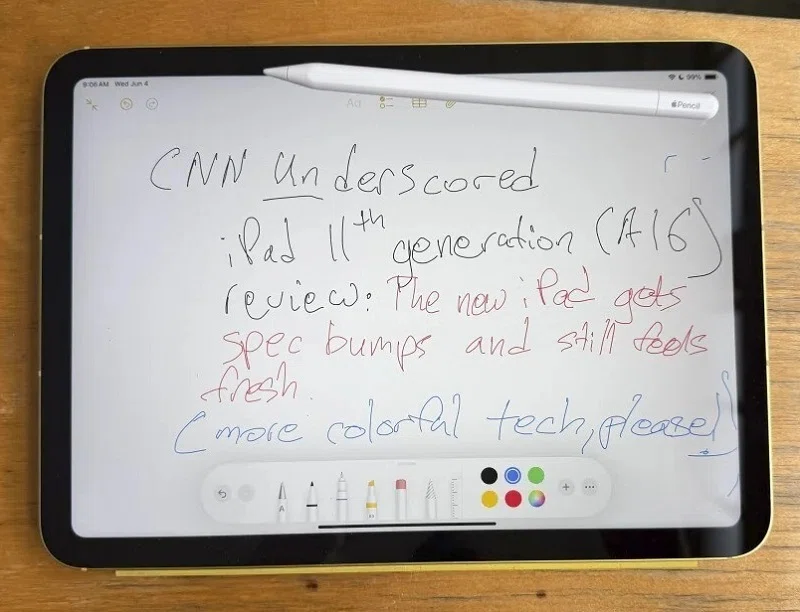 9:06 AM Wed Jun 4
99%
Pencil
Aa
CNN Underscored
iPad 11th generation (A16)
review: The new iPad gets
spec bumps and still feels
fresh.
(more colorful tech, please!)
A